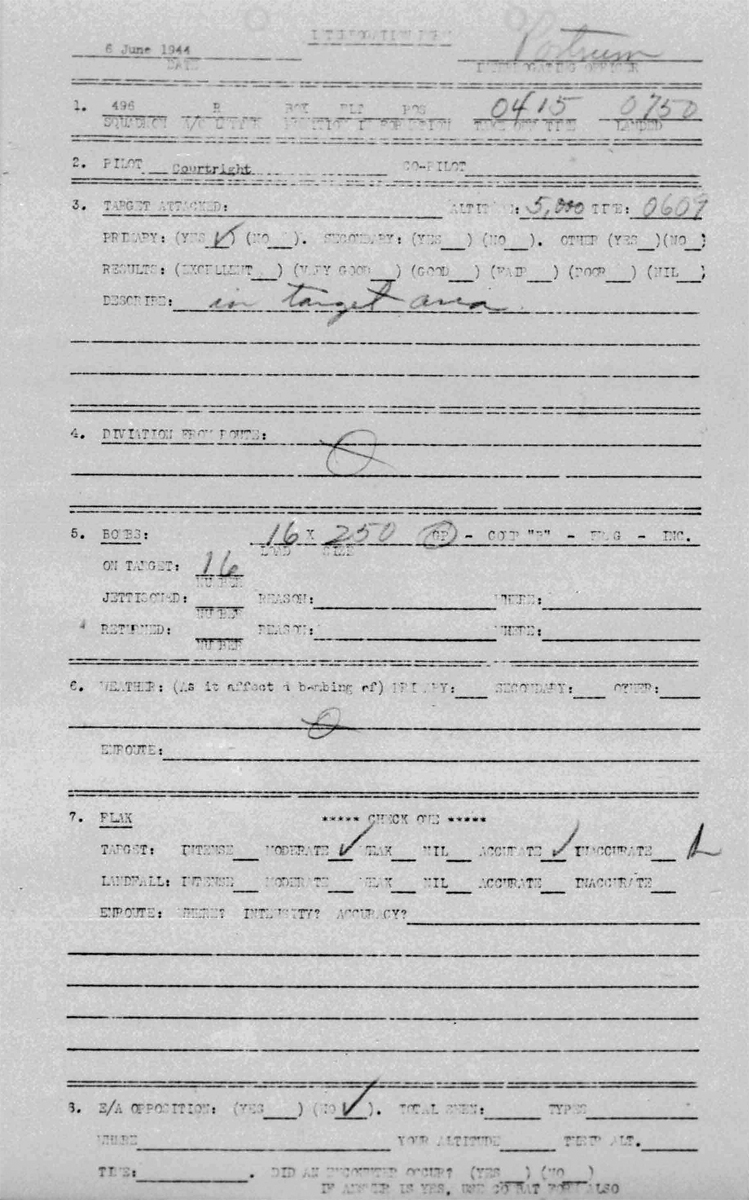 INTERROGATION FORM
6 June 1944
DATE INTERROGATING OFFICER
1. 496 R BOX FLT POS 0415 0750
SQUADRON A/C LETTER POSITION IN FORMATION TAKE OFF TIME LANDED
2. PILOT Courtright CO-PILOT
3. TARGET ATTACKED: ALTITUDE: 5,000 TIME: 0609
PRIMARY: (YES ✓) (NO__). SECONDARY: (YES__) (NO__). OTHER (YES__)(NO__)
RESULTS: (EXCELLENT__) (VERY GOOD__) (GOOD__) (FAIR__) (POOR__) (NIL__)
DESCRIBE: in target area.
4. DIVIATION FROM ROUTE:
5. BOMBS: 16 X 250 GP - COMP "B" - FRAG - INC.
LOAD SIZE
ON TARGET: 16
NUMBER
JETTISONED: REASON: WHERE:
NUMBER
RETURNED: REASON: WHERE:
NUMBER
6. WEATHER: (As it affected bombing of) PRIMARY:__ SECONDARY:__ OTHER:__
ENROUTE:
7. FLAK ***** CHECK ONE *****
TARGET: INTENSE__ MODERATE ✓ WEAK__ NIL__ ACCURATE ✓ INACCURATE__
LANDFALL: INTENSE__ MODERATE__ WEAK__ NIL__ ACCURATE__ INACCURATE__
ENROUTE: WHERE? INTENSITY? ACCURACY?
8. E/A OPPOSITION: (YES__) (NO ✓). TOTAL SEEN: TYPES
WHERE YOUR ALTITUDE THEIR ALT.
TIME: . DID AN ENCOUNTER OCCUR? (YES__) (NO__)
IF ANSWER IS YES, USE COMBAT FORM ALSO